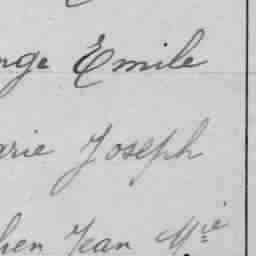 nge Emile
arie Joseph
hen Jean Mie